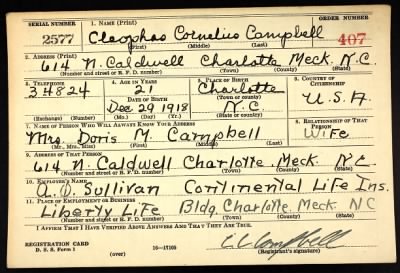 SERIAL NUMBER 1. NAME (Print) ORDER NUMBER
2577 Cleophas Cornelius Campbell 407
(First) (Middle) (Last)
2. ADDRESS (Print)
614 N. Caldwell Charlotte Meck. N.C.
(Number and street or R. F. D. number) (Town) (County) (State)
3. TELEPHONE 4. AGE IN YEARS 5. PLACE OF BIRTH 6. COUNTRY OF CITIZENSHIP
34824 21 Charlotte
DATE OF BIRTH (Town or county)
Dec 29 1918 N.C. U.S.A.
(Exchange) (Number) (Mo.) (Day) (Yr.) (State or country)
7. NAME OF PERSON WHO WILL ALWAYS KNOW YOUR ADDRESS 8. RELATIONSHIP OF THAT PERSON
Mrs. Doris M. Campbell Wife
(Mr., Mrs., Miss) (First) (Middle) (Last)
9. ADDRESS OF THAT PERSON
614 N. Caldwell Charlotte. Meck. N.C.
(Number and street or R. F. D. number) (Town) (County) (State)
10. EMPLOYER'S NAME
Sullivan Continental Life Ins.
11. PLACE OF EMPLOYMENT OR BUSINESS
Liberty Life Bldg. Charlotte. Meck. NC
(Number and street or R. F. D. number) (Town) (County) (State)
I AFFIRM THAT I HAVE VERIFIED ABOVE ANSWERS AND THAT THEY ARE TRUE.
C C Campbell
REGISTRATION CARD
D. S. S. Form 1 (over) 16—17105 (Registrant's signature)